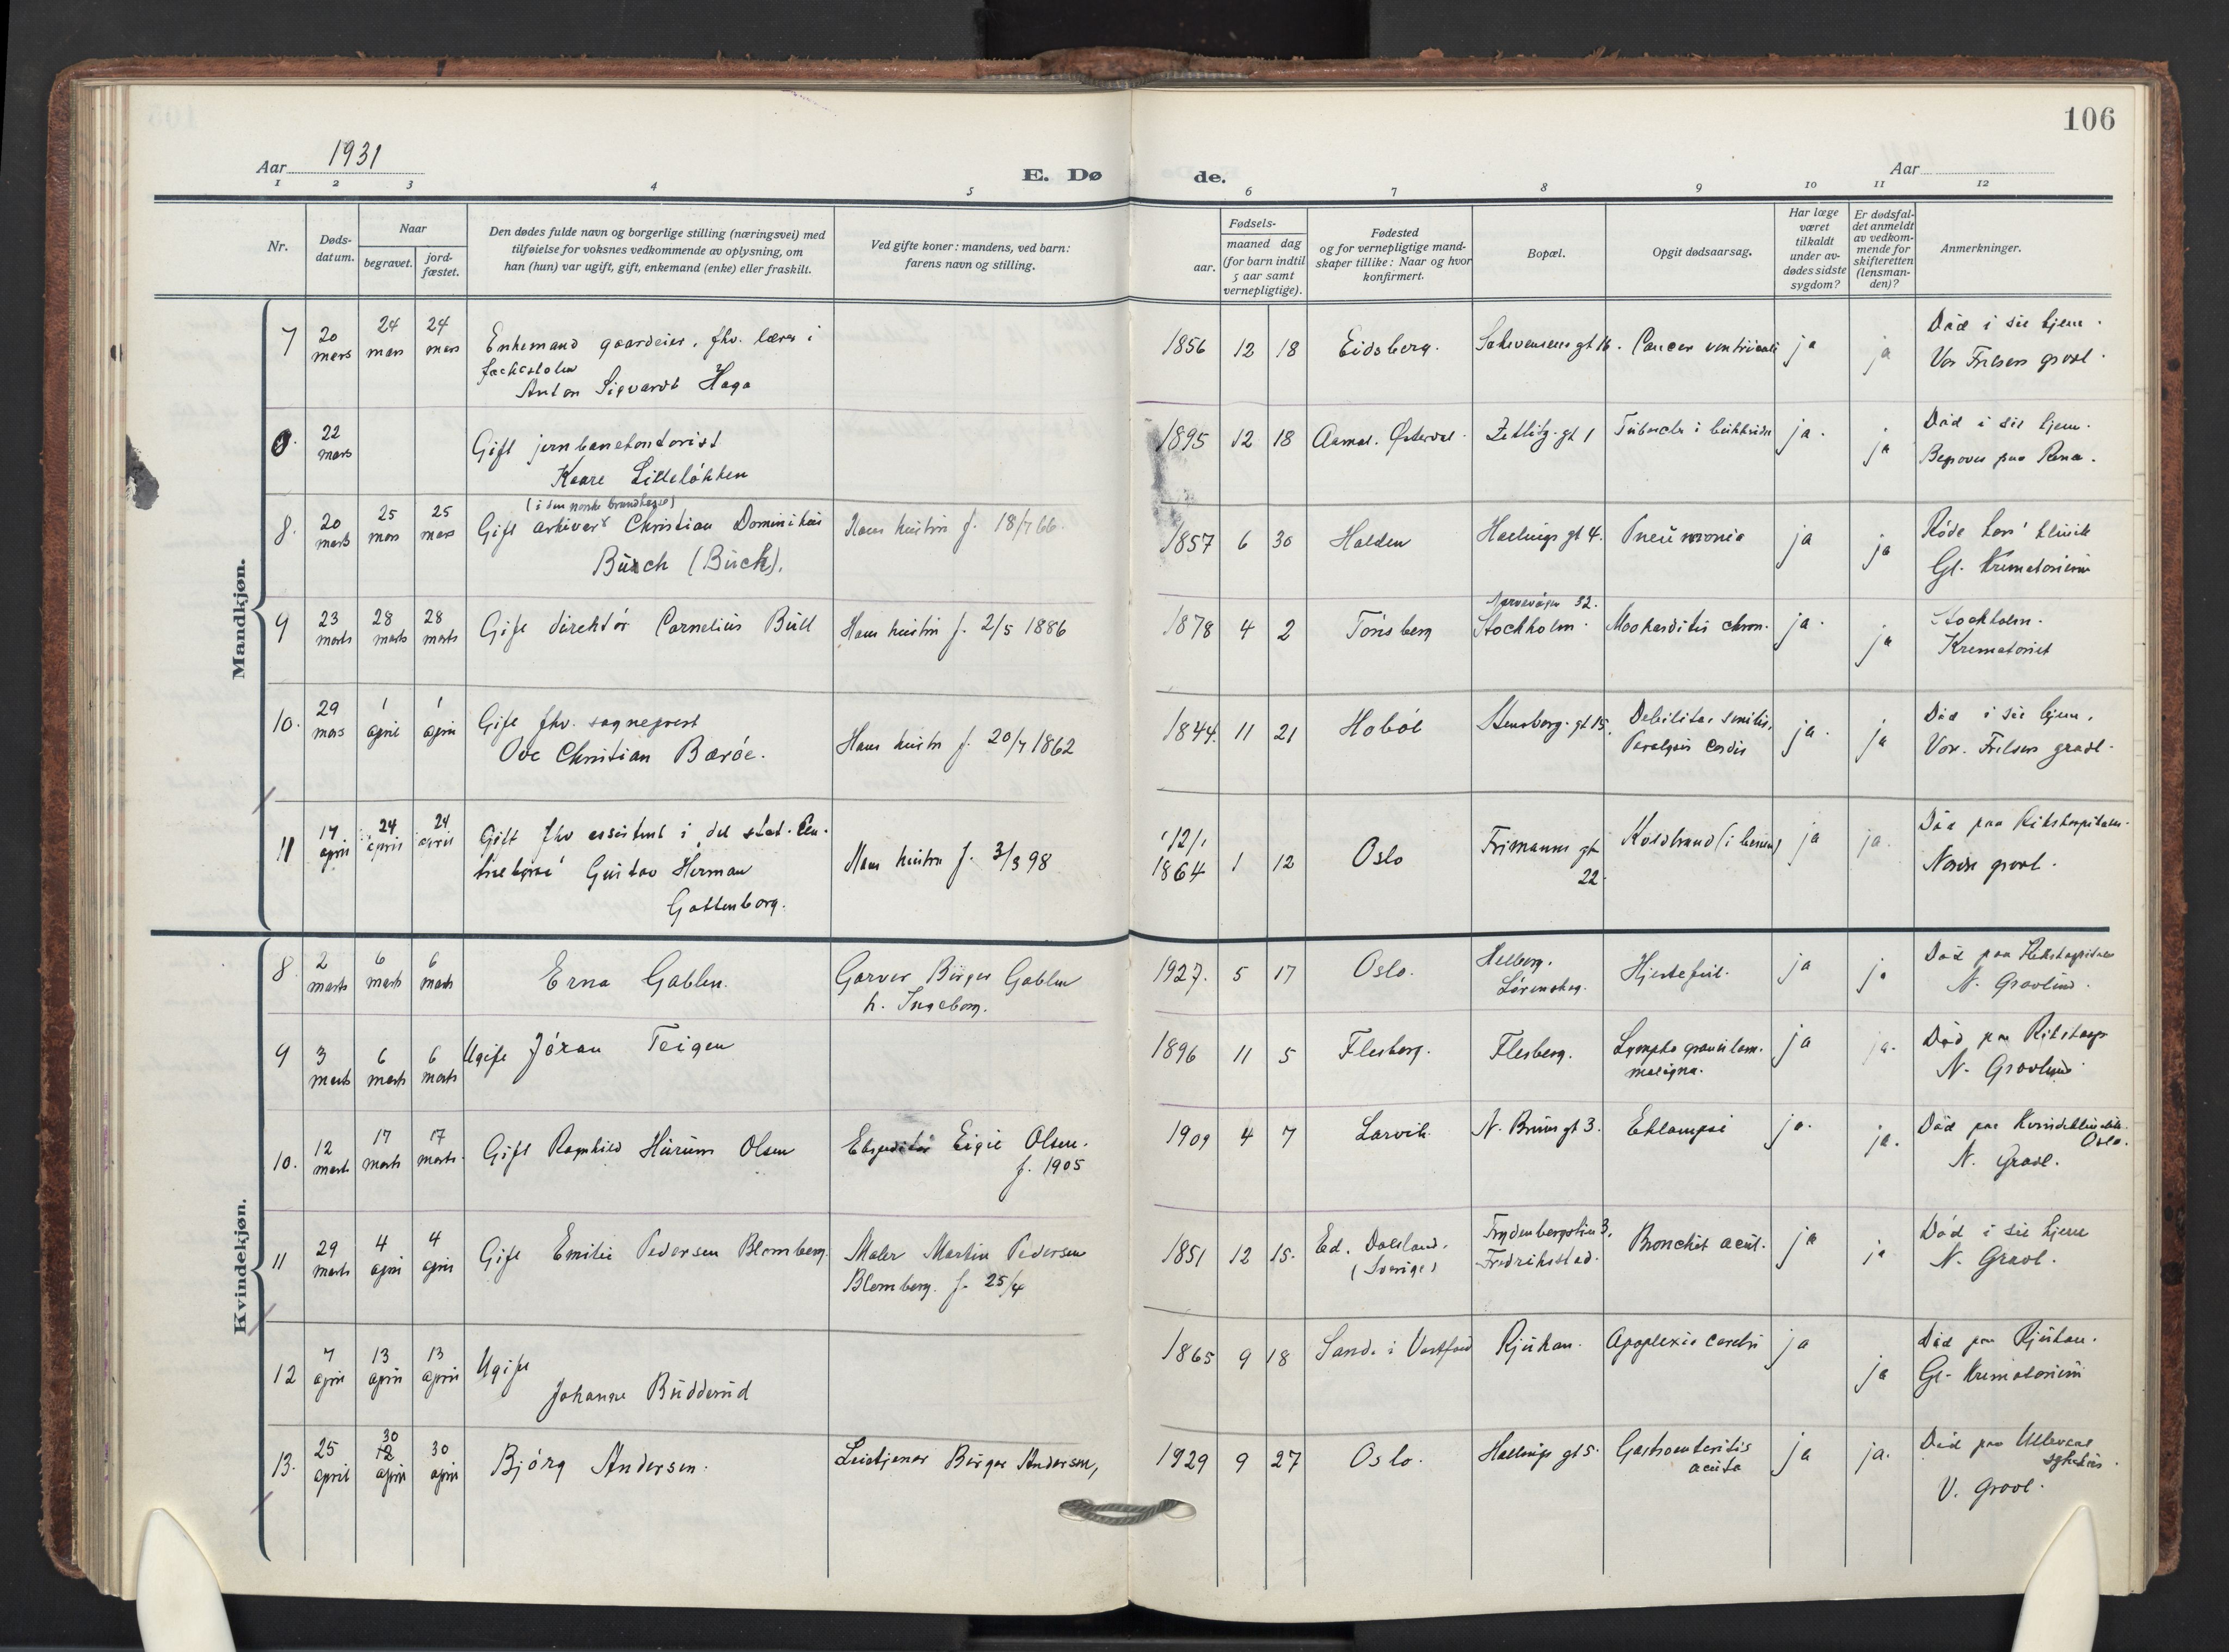 106
Aar 1931
E. Dø de.
Aar
1 2 3 4 5 6 7 8 9 10 11 12
Nr.
Døds-
datum.
Naar
begravet.
jord-
fæstet.
Den dødes fulde navn og borgerlige stilling (næringsvei) med
tilføielse for voksnes vedkommende av oplysning, om
han (hun) var ugift, gift, enkemand (enke) eller fraskilt.
Ved gifte koner: mandens, ved barn:
farens navn og stilling.
Fødsels-
aar.
maaned dag
(for barn indtil
5 aar samt
vernepligtige).
Fødested
og for vernepligtige mand-
skaper tillike: Naar og hvor
konfirmert.
Bopæl.
Opgit dødsaarsag.
Har læge
været
tilkaldt
under av-
dødes sidste
sygdom?
Er dødsfal-
det anmeldt
av vedkom-
mende for
skifteretten
(lensman-
den)?
Anmerkninger.
Mandkjøn.
7 20 mars 24 mars 24 mars
Enkemand gaardeier, fhv. lærer i
Anton Sigvardt Haga
1856 12 18 Eidsberg. gt 16. Cancer ventriculi ja ja
Død i sit hjem.
Vor Frelsers gravl.
0. 22 mars
Gift jernbanekontorist
Kaare Lilleløkken
1895 12 18 Aamot. Østerdal. Zetlitz. gt 1 ja. ja
Død i sit hjem.
Begraves paa Rena.
8. 20 marts 25 mars 25 mars
(i den norske brandkasse)
Gift arkivar Christian Dominikus
Busch (Buch).
Hans hustru f. 18/7 66.
1857 6 30 Halden Hallings gt 4. Pneumonia ja ja
Røde Kors' klinik
Gl. Krematorium
9 23 marts 28 marts 28 marts
Gift direktør Cornelius Bull
Hans hustru f. 2/5 1886
1878 4 2 Tønsberg
Narvavägen 32.
Stockholm. Myokarditis chron. ja. ja
Stockholm.
Krematoriet
10. 29 mars 1 april 1 april
Gift fhv. sogneprest
Ove Christian Barøe.
Hans hustru f. 20/7 1862
1844. 11 21 Hobøl Stensberg. gt 15. Debilitas senilis.
Paralysis cordis ja. ja
Død i sit hjem.
Vor. Frelsers gravl.
11 17 april 24 april 24 april
Gift fhv assistent i det stat. Cen-
tralbyrå Gustav Herman
Gottenborg.
Hans hustru f. 3/3 98
12/1
1864 1 12 Oslo Frimanns gt
22. Koldbrand (i benene) ja ja.
Død paa Rikshospitalet.
Nordre gravl.
Kvindekjøn.
8. 2 marts 6 marts 6 marts
Erna Gablen.
Garver Birger Gablen
h. Ingeborg.
1927. 5 17 Oslo.
Helberg.
Lørenskog. Hjertefeil. ja ja
Død paa Rikshospitalet
N. Gravlund.
9 3 marts 6 marts 6 marts
Ugift Jøran Teigen
1896 11 5 Flesberg. Flesberg. Lympho granulom.
maligna. ja ja.
Død paa Rikshosp
N. Gravlund
10. 12 marts 17 marts 17 marts.
Gift Ragnhild Hurum Olsen
Ekspeditør Eigil Olsen.
f. 1905
1909 4 7 Larvik. N. Bruns gt 3. Eklampsi ja. ja.
Død paa Kvindeklinikken.
Oslo.
N. Gravl.
11 29 marts 4 april 4 april
Gift Emilie Pedersen Blomberg.
Maler Martin Pedersen
Blomberg. f. 25/4
1851 12 15. Ed. Dalsland.
(Sverige)
Frydenbergstien 3.
Fredrikstad. Bronchit acut. ja ja
Død i sit hjem
N. Gravl.
12 7 april 13 april 13 april
Ugift
Johanne Budderud
1865 9 18 Sande i Vestfold Rjukan. Apoplexia cerebri ja ja
Død paa Rjukan.
Gl. Krematorium
13. 25 april 30 12 april 30 april
Bjørg Andersen.
Birger Andersen,
1929 9 27 Oslo. Hallings gt 5. Gastroenteritis
acuta ja ja.
Død paa Ullevaal
sykehus.
V. Gravl.